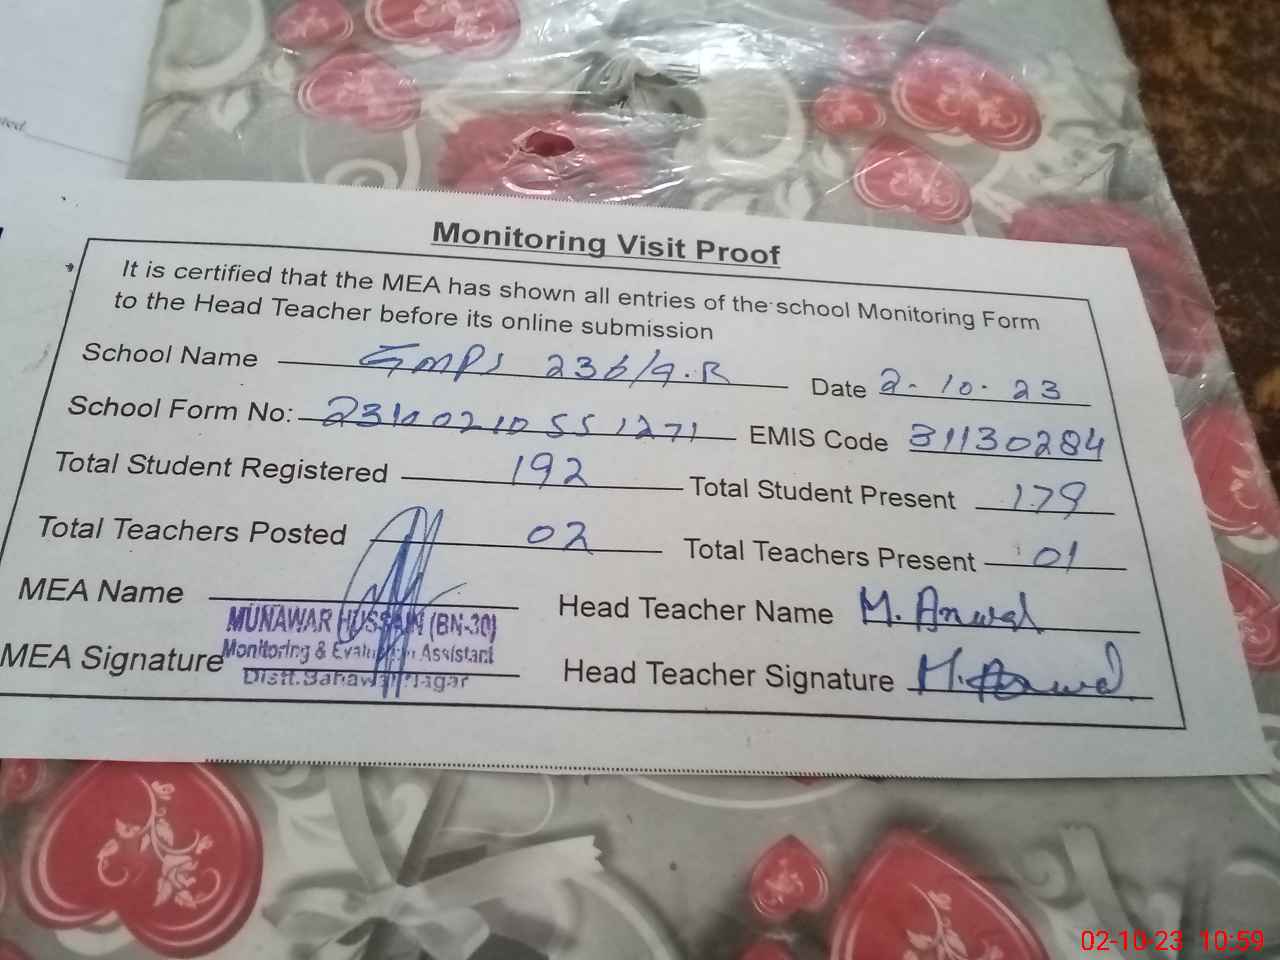 Monitoring Visit Proof
It is certified that the MEA has shown all entries of the school Monitoring Form
to the Head Teacher before its online submission
School Name GMPS 236/9.R Date 2-10-23
School Form No: EMIS Code 31130284
Total Student Registered 192 Total Student Present 179
Total Teachers Posted 02 Total Teachers Present 01
MEA Name Head Teacher Name M. Anwar
MUNAWAR HUSSAIN (BN-30)
Monitoring & Evaluation Assistant
MEA Signature Head Teacher Signature M. Anwar
Distt. Bahawalnagar
02-10-23 10:59